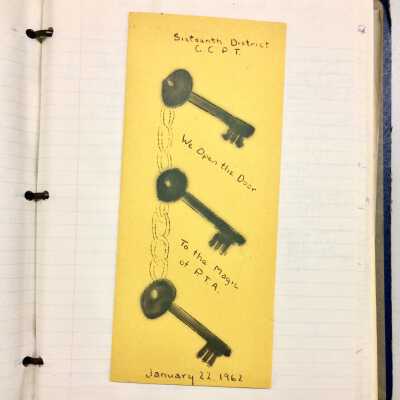 Sixteenth District
C.C.P.T.
We Open the Door
To the Magic
of P.T.A.
January 22, 1962